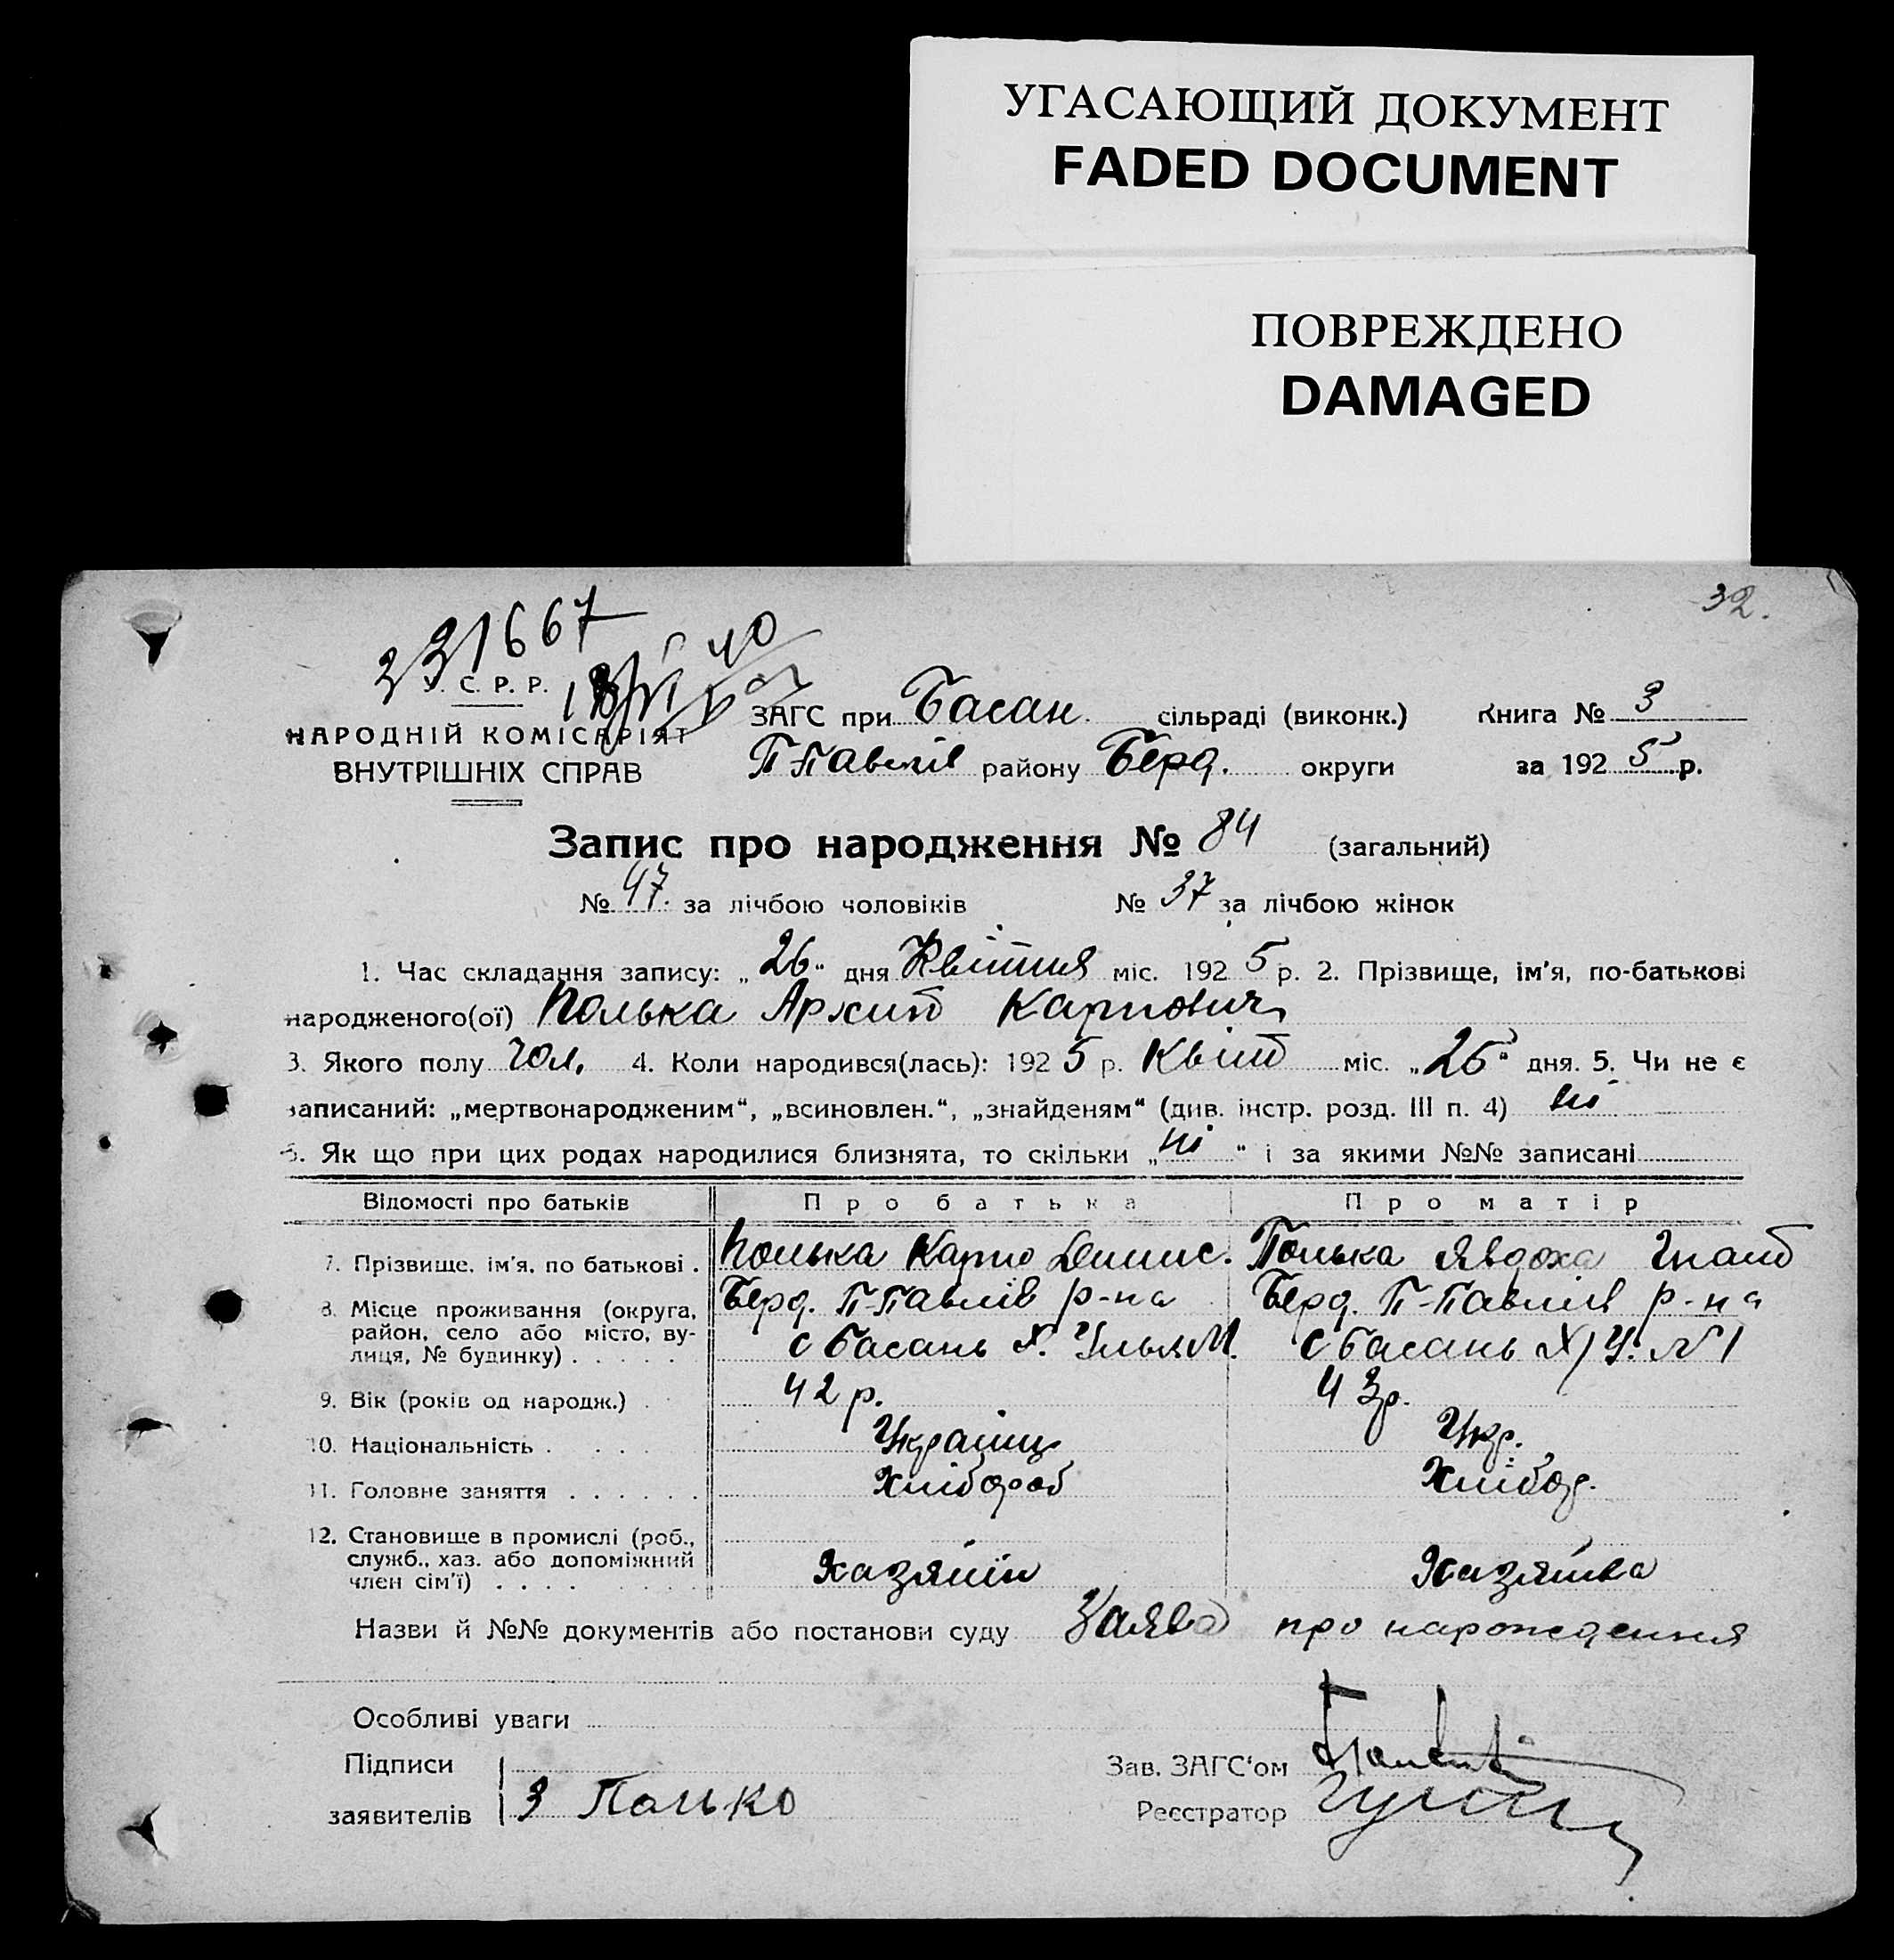 УГАСАЮЩИЙ ДОКУМЕНТ
FADED DOCUMENT
ПОВРЕЖДЕНО
DAMAGED
32.
231667
У. С. Р. Р.
НАРОДНІЙ КОМІСАРІЯТ
ВНУТРІШНІХ СПРАВ
ЗАГС при Басан. сільраді (виконк.) Книга № 3
П-Павлів району Берд. округи за 1925 р.
Запис про народження № 84 (загальний)
№ 47. за лічбою чоловіків № 37 за лічбою жінок
1. Час складання запису: „26“ дня Квітня міс. 1925 р. 2. Прізвище, ім'я, по-батькові
народженого(ої) Полька Архип Карпович
3. Якого полу чол. 4. Коли народився(лась): 1925 р. Квіт міс. „26“ дня. 5. Чи не є
записаний: „мертвонародженим“, „всиновлен.“, „знайденям“ (див. інстр. розд. III п. 4) ні
6. Як що при цих родах народилися близнята, то скільки „ні“ і за якими №№ записані
Відомості про батьків Про батька Про матір
7. Прізвище, ім'я, по батькові . Полька Карпо Денис. Полька Явдоха Гнат
8. Місце проживання (округа, район, село або місто, вулиця, № будинку) . . . . . Берд. П-Павлів р-на Берд. П-Павлів р-на
с Басань с Басань №1
9. Вік (років од народж.) . 42 р. 43р.
10. Національність . . . . Українц Укр.
11. Головне заняття . . . . . . Хлібороб Хлібор.
12. Становище в промислі (роб., служб., хаз. або допоміжний член сім'ї) . . . . Хазяїін Хазяйка
Назви й №№ документів або постанови суду Заява про нарождения
Особливі уваги
Підписи
заявителів З Полько
Зав. ЗАГС'ом
Реєстратор